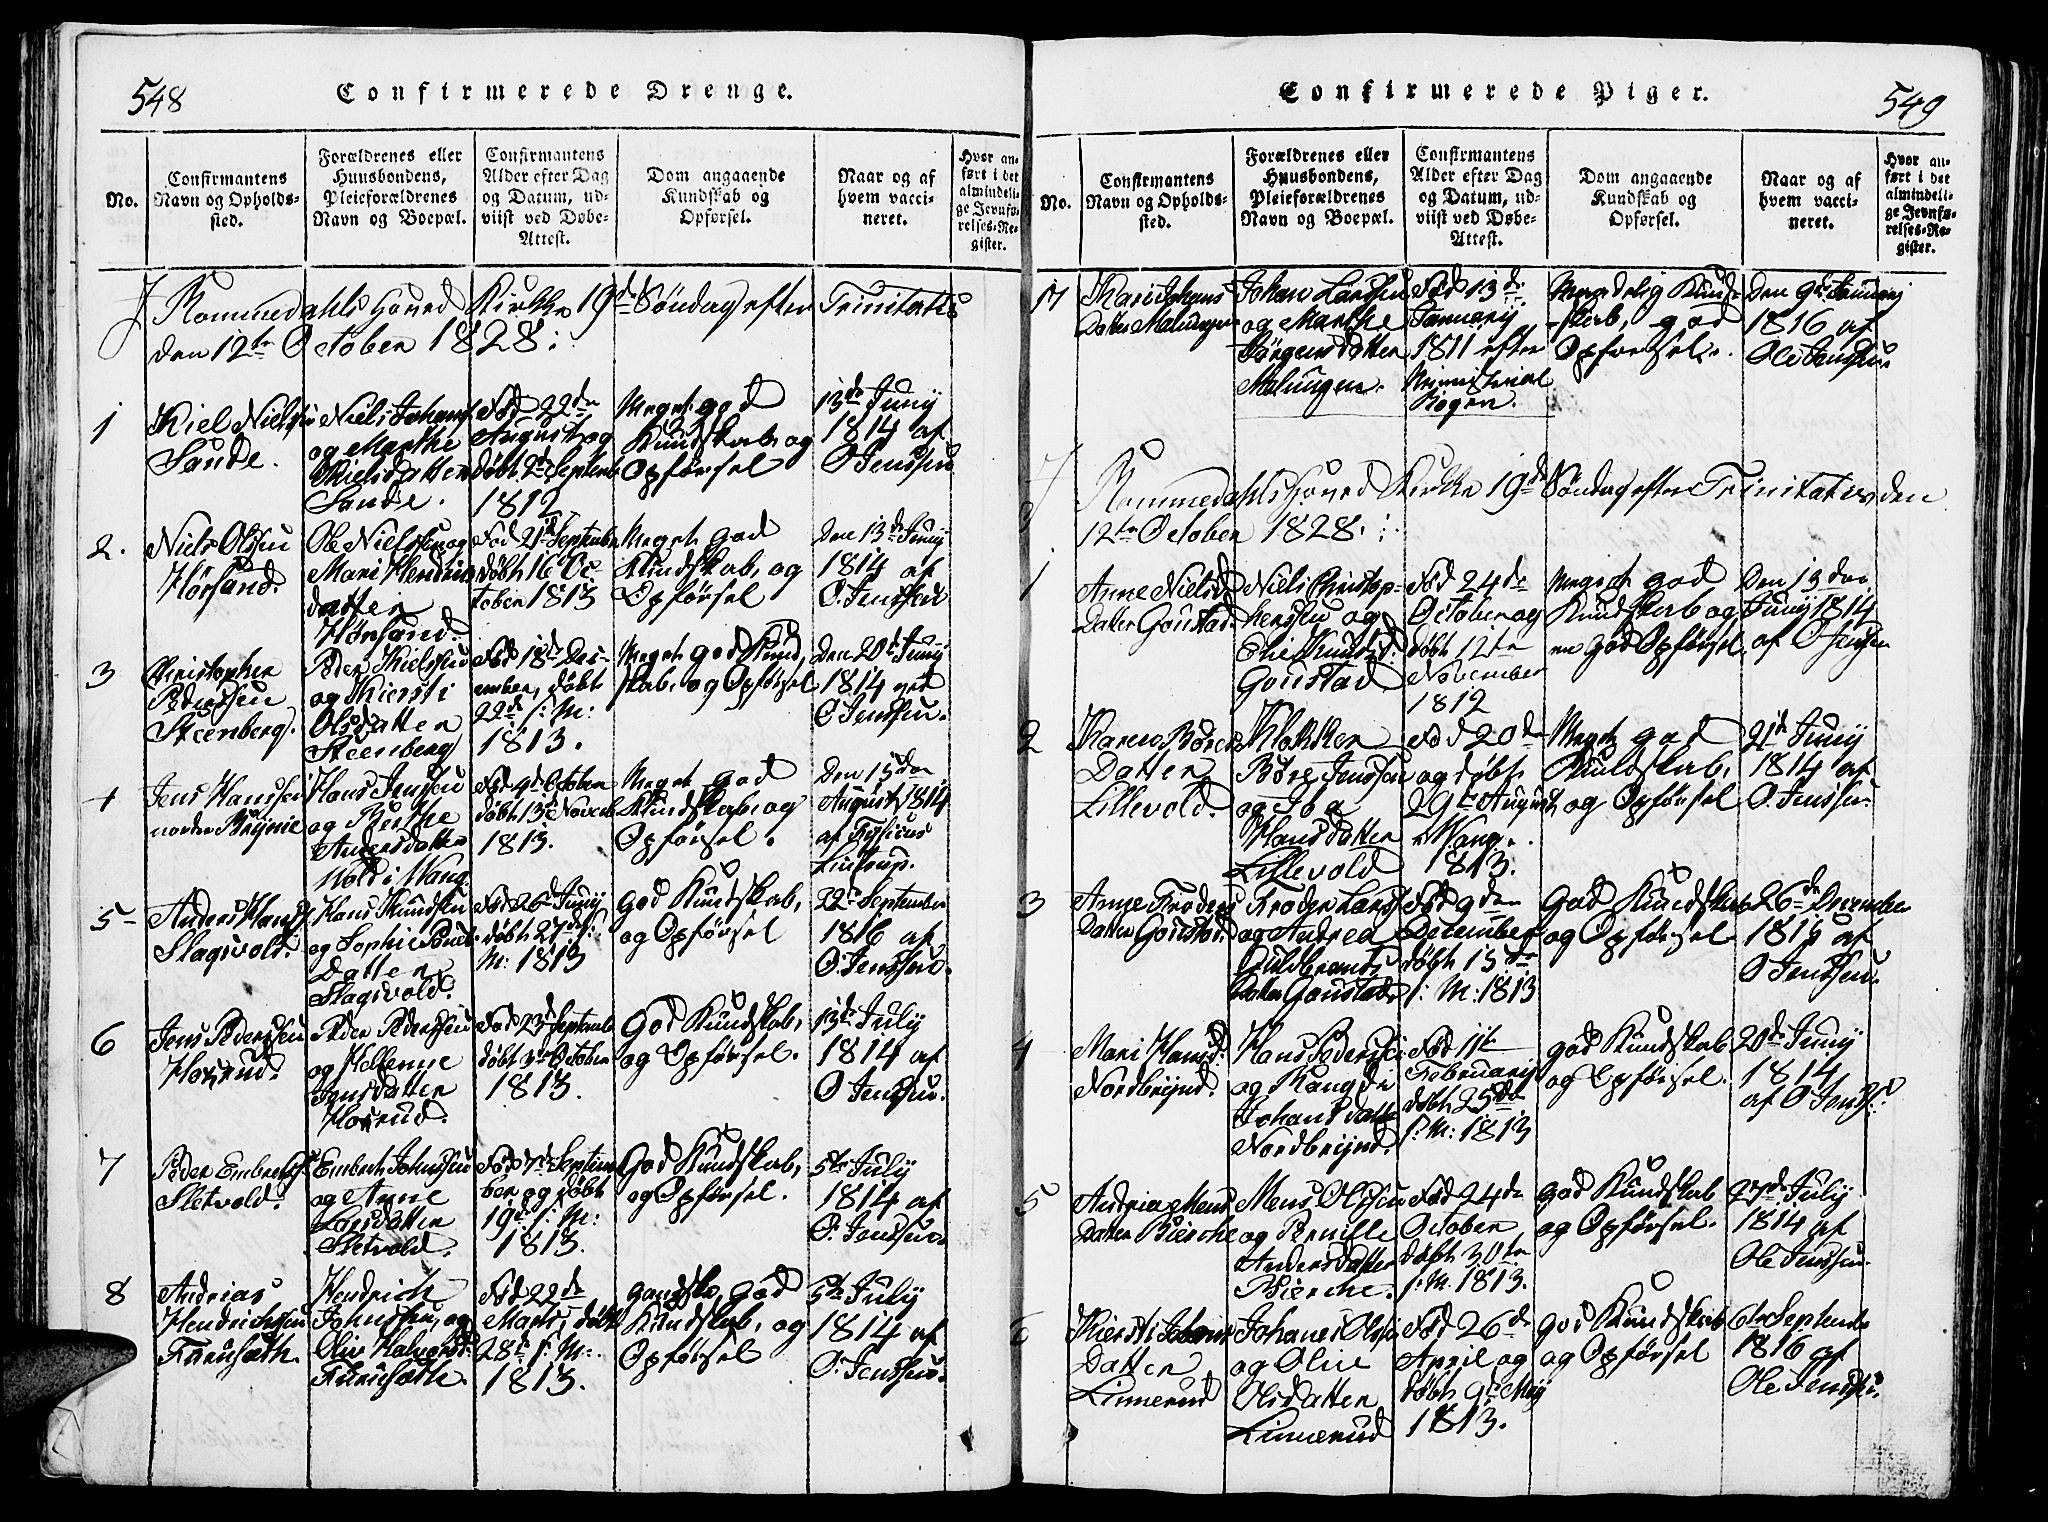 548
Confirmerede Drenge.
No.
Confirmantens
Navn og Opholds-
sted.
Forældrenes eller
Huusbondens,
Pleieforældrenes
Navn og Boepæl.
Confirmantens
Alder efter Dag
og Datum, ud-
viist ved Døbe-
Attest.
Dom angaaende
Kundskab og
Opførsel.
Naar og af
hvem vacci-
neret.
Hvor an-
ført i det
almindeli-
ge Jevnfø-
relses-Re-
gister.
I Rommedahls Hoved Kirke 19de Søndag efter Trinitatis
den 12te October 1828:
1
Kiel Nielsen
Sande.
Niels Johans
og Marthe
Kielsdatter
Sande.
Fød 22de
August og
døbt 2de Septemb
1812
Meget god
Kundskab og
Opførsel
13de Juny
1814 af
O Jenssen
2.
Niels Olsen
Hørsand.
Ole Nielssen og
Mari Hendrics
datter
Hørsand.
Fød 21de September
døbt 16 Oc
tober 1813
Meget god
Kundskab, og
Opførsel
Den 13de Juny
1814 af
O. Jenssen
3
Christopher
Pederssen
Steenberg.
Peder Kielssen
og Kiersti
Olsdatter
Steenberg
Fød 18de Dec-
ember, døbt
22de s: M:
1813.
Meget god Kund,
skab, og Opførsel
Den 20de Juny
1814 ved
O Jenssen.
4
Jens Hanssen
nordre Brÿnie
Hans Jenssen
og Berthe
Andersdatter
Wold i Wang
Fød 9de October
døbt 13de Novemb
1813.
Meget god
Kundskab, og
Opførsel.
Den 15den
August 1814
af Fysicus
Lintrup.
5
Anders Hans
Slagsvold.
Hans Knudsen
og Sophie Pouls
Datter
Slagsvold.
Fød 26de Juny
døbt 27de s:
M: 1813
God Kundskab,
og Opførsel
22de September
1816 af
O: Jenssen.
6
Jens Pederssen
Horrud.
Peder Pederssen
og Hellenne
Jensdatter
Horrud.
Fød 23de Septemb
døbt 3de October
1813.
God Kundskab,
og Opførsel.
13de July
1814 af
O Jenssen.
7
Peder Embretss
Sletvold.
Embret Johnssen
og Anne
Larsdatter
Sletvold.
Fød 7de Septem
ber og døbt
19de s: M:
1813.
God Kundskab,
og Opførsel.
5te July
1814 af
O: Jenssen.
8
Andreas
Hendrichssen
Furusæth.
Hendrich
Johnssen, og
Olive Halvorsd:
Furusæth.
Fød 22de
Marts, døbt
28de s: M:
1813.
gandske god
Kundskab, og
Opførsel
5te July
1814 af
O: Jenssen.
549
Confirmerede Piger.
No.
Confirmantens
Navn og Opholds-
sted.
Forældrenes eller
Huusbondens,
Pleieforældrenes
Navn og Boepæl.
Confirmantens
Alder efter Dag
og Datum, ud-
viist ved Døbe-
Attest.
Dom angaaende
Kundskab og
Opførsel.
Naar og af
hvem vacci-
neret.
Hvor an-
ført i det
almindeli-
ge Jevnfø-
relses-Re-
gister.
17
Kari Johans
Datter Malungen
Johan Larssen
og Marthe
Jørgensdatter
Malungen.
Fød 13de
January
1811 efter
Ministerial
Bogen.
Maadelig Kund
skab, god
Opførsel.
Den 9de January
1816 af
Ole Jenssen.
I Rommedahls Hoved Kirke 19de Søndag efter Trinitatis, den
12te October 1828.:
1
Anne Niels
Datter Gonstad.
Niels Christop-
herssen og
Elie Knudsd:
Gonstad
Fød 24de
October og
døbt 12te
November
1812
Meget god
Kundskab og
en god Opførsel
Den 13den
Juny 1814
af O Jenssen
2
Karen Børes
Datter
Lillevold.
Klokker
Børe Jenssen
og
Hansdatter
Lillevold
Fød 20de
og døbt
29te August
i Wang.
1813.
Meget god
Kundskab,
og Opførsel
21de Juny
1814 af
O. Jenssen.
3
Anne Frodens
Datter Gonstad.
Froden Lars
og Andrea
Guldbrands
Datter Gonstad
Fød 9den
December
døbt 15de
s: M: 1813
God Kundskab
og Opførsel
26de December
1815 af
O Jenssen.
4
Mari Hansd:
Nordbrÿnd.
Hans Pederssen
og Rangdi
Johansdatter
Nordbrÿnd.
Fød 11te
February
døbt 25de
s: M: 1813
god Kundskab
og Opførsel.
20de Juny
1814
af O Jenss:
5
Andrica Mens
Datter Bierche
Mens Olssen
og Pernille
Andersdatter
Bierche.
Fød 24de
October
døbt 30te
s: M. 1813.
god Kundskab
og Opførsel.
27de July
1814 af
Ole Jenssen.
6
Kiersti Johans
Datter
Linnerud
Johanes Olsen
og Oline
Olsdatter
Linnerud
Fød 26de
April og
døbt 9de May
1813.
god Kundskab
og Opførsel
6te Septembr
1816 af
Ole Jenssen.